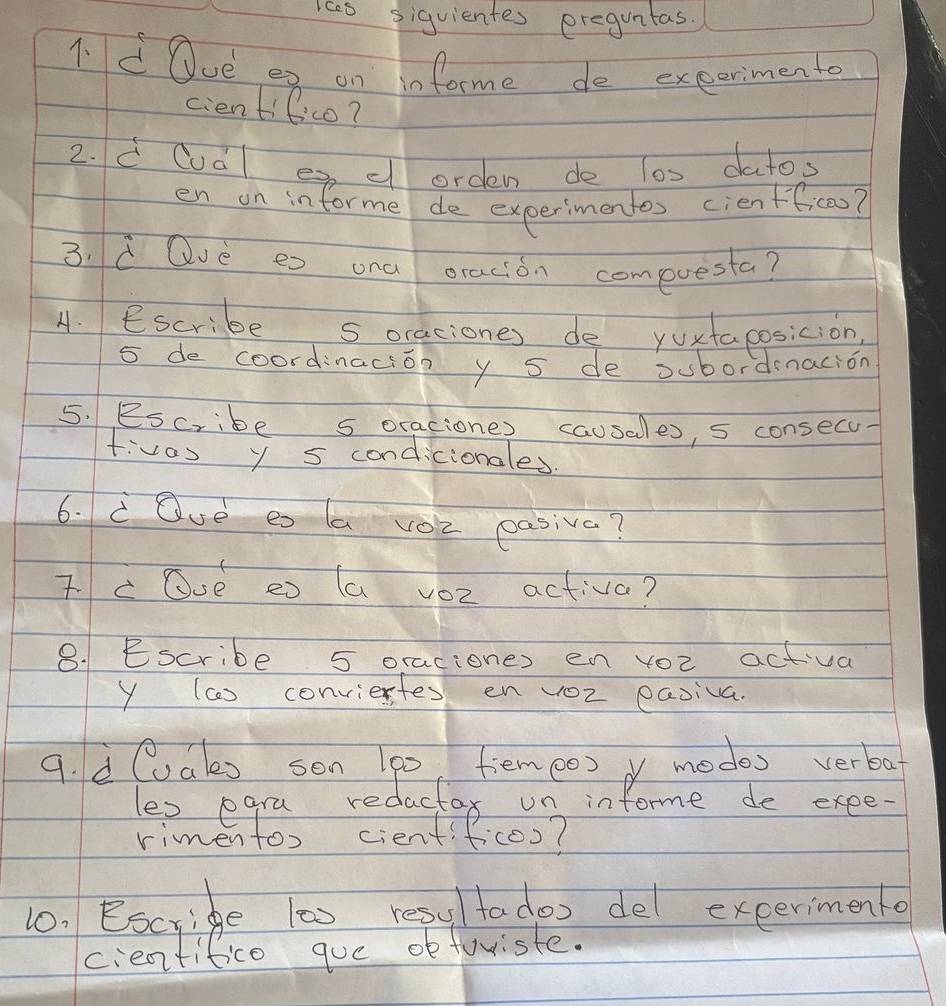 las siguientes preguntas.
1. ¿Qué es un informe de experimento
científico?
2. ¿Cuál es el orden de los datos
en un informe de experimentos científicos?
3. ¿Qué es una oración compuesta?
4. Escribe 5 oraciones de yuxtaposición,
5 de coordinación y 5 de subordinación
5. Escribe 5 oraciones causales, 5 consecu-
tivas y 5 condicionales.
6. ¿Qué es la voz pasiva?
7. ¿Qué es la voz activa?
8. Escribe 5 oraciones en voz activa
y las conviertes en voz pasiva.
9. ¿Cuáles son los tiempos y modos verba-
les para redactar un informe de expe-
rimentos científicos?
10. Escribe los resultados del experimento
científico que obtuviste.